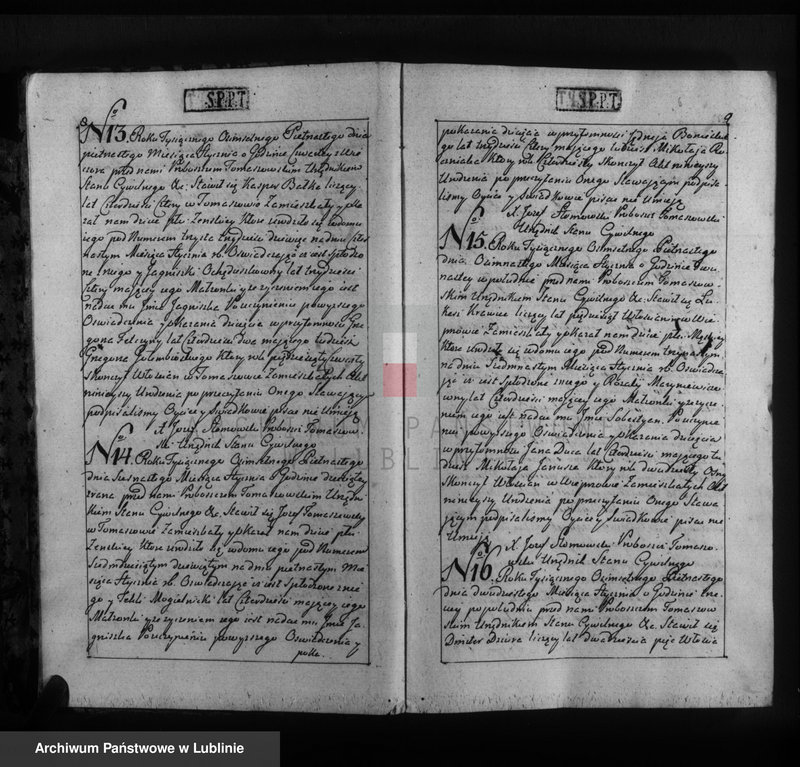 S.P.P.T.
8
No 13. Roku Tysiącznego Osmsetnego Pietnastego dnia
pietnastego Miesiąca Stycznia o Godzinie Czwartey z Wie
czora przed nami Proboszczem Tomaszowskim Urzędnikiem
Stanu Cywilnego &c. Stawił się Kasper Bełka liczący
lat Czterdzieści Który w Tomaszowie Zamieszkały y oka
zał nam dziecie płci Zenskiey Które urodziło się w domu
iego pod Numerem trzysta trzydzieści dziewięć na dniu
nastym Miesiąca Stycznia rb. Oswiadczaiąc iż iest spłodzo
ne z niego y Jagniszki lat trzydzieści
maiącey iego Małzonki y ze zyczeniem iego iest
nadac mu Jmie Jagniszka Po uczynieniu powyzszego
Oswiadczenia y okazania dziecięcia w przytomnosci Grze
gorza lat Czterdzieści dwa maiącego tudzież
Grzegorza Gołembiowskiego Który rok pięćdziesiąty czwarty
skonczył Włoscian w Tomaszowie Zamieszkałych Akt
ninieyszy Urodzenia po przeczytaniu Onego Stawaiącym
podpisalismy Oyciec y Swiadkowie pisac nie Umieią
X. Jozef Słomowski Proboszcz Tomaszow
ski Urzędnik Stanu Cywilnego
No 14. Roku Tysiącznego Osmsetnego Pietnastego
dnia Miesiąca Stycznia o Godzinie dziesiątey
zrana przed Nami Proboszczem Tomaszowskim Urzędni
kiem Stanu Cywilnego &c. Stawił się Jozef Tomaszewski
w Tomaszowie Zamieszkały y okazał nam dziecie płci
Zenskiey Ktore urodziło się w domu iego pod Numerem
Siedmdziesiątym dziewiątym na dniu pietnastym Mie
siąca Stycznia rb. Oswiadczaiąc iż iest Spłodzone z nie
go y Tekli Mogielnicki lat Czterdzieści maiącey iego
Małzonki y ze zyczeniem iego iest nadac mu Jmie Ja
gniszka Po uczynieniu powyzszego Oswiadczenia y
poka.
S.P.P.T.
9
pokazania dziecięcia w przytomnosci Jędrzeia
go lat trzydzieści Ktory maiącego tudzież Mikołaia
Który rok Czterdziesty Skonczył Akt ninieyszy
Urodzenia po przeczytaniu Onego Stawaiącym podpisa
lismy Oyciec y Swiadkowie pisac nie Umieią
X. Jozef Słomowski Proboszcz Tomaszowski
Urzędnik Stanu Cywilnego
No 15. Roku Tysiącznego Osmsetnego Pietnastego
dnia Osmnastego Miesiąca Stycznia o Godzinie Dwu
nastey w południe przed nami Proboszczem Tomaszow
skim Urzędnikiem Stanu Cywilnego &c. Stawił się Łu
kasz Krawiec liczący lat pięćdziesiąt Włoscianin w Wie
przowie Zamieszkały y okazał nam dziecie płci Męskiey
Ktore urodziło się w domu iego pod Numerem
na dniu Siedmnastym Miesiąca Stycznia rb. Oswiadcza
iąc iż iest Spłodzone z niego y Rozalii
lat Czterdzieści maiącey iego Małzonki y ze zycze
niem iego iest nadac mu Jmie Sobestyan. Po uczynie
niu powyzszego Oswiadczenia y okazania dziecięcia
w przytomnosci Jana Duca lat Czterdzieści maiącego tu
dzież Mikołaia Janusza Ktory rok dwudziesty Osmy
Skonczył Włoscian w Wieprzowie Zamieszkałych Akt
ninieyszy Urodzenia po przeczytaniu Onego Stawa
iącym podpisalismy Oyciec y Swiadkowie pisac nie
Umieią
X. Jozef Słomowski Proboszcz Tomaszo
wski Urzędnik Stanu Cywilnego
No 16. Roku Tysiącznego Osmsetnego Pietnastego
dnia dwudziestego Miesiąca Stycznia o Godzinie trze
ciey po południu przed nami Proboszczem Tomaszow
skim Urzędnikiem Stanu Cywilnego &c. Stawił się
Dmiter Dziura liczący lat dwadzieścia pięć Włoscia
Archiwum Państwowe w Lublinie